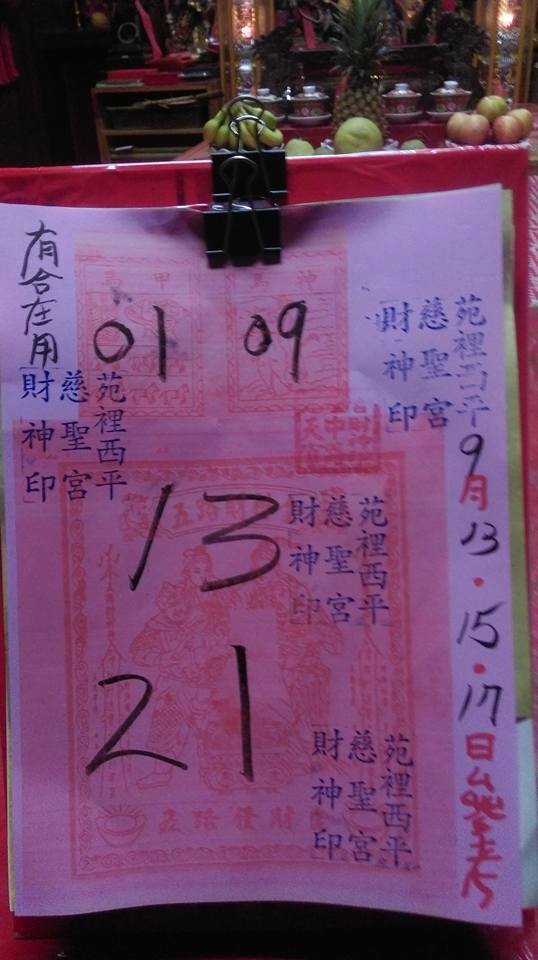 有合在用
01 09
苑裡西平
慈聖宮
財神印
苑裡西平
慈聖宮
財神印
13
苑裡西平
慈聖宮
財神印
21
苑裡西平
慈聖宮
財神印
五路發財
9月13.15.17日